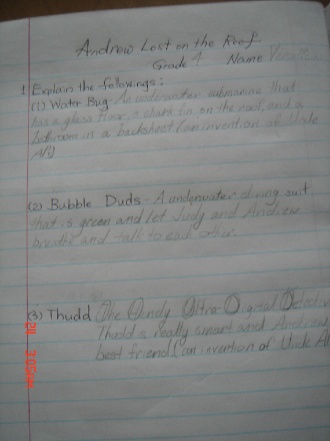 Andrew Lost on the Reef
Grade 4 Name
1 Explain the followings:
(1) Water Bug - An underwater submarine that
has a glass floor, a shark fin on the roof, and a
bathroom in a backsheat (an invention of Uncle
Al)
(2) Bubble Duds - A underwater diving suit
that is green and let Judy and Andrew
breathe and talk to each other.
(3) Thudd The Handy Ultra Digital Detective
Thudd is really smart and Andrew
best friend (an invention of Uncle Al